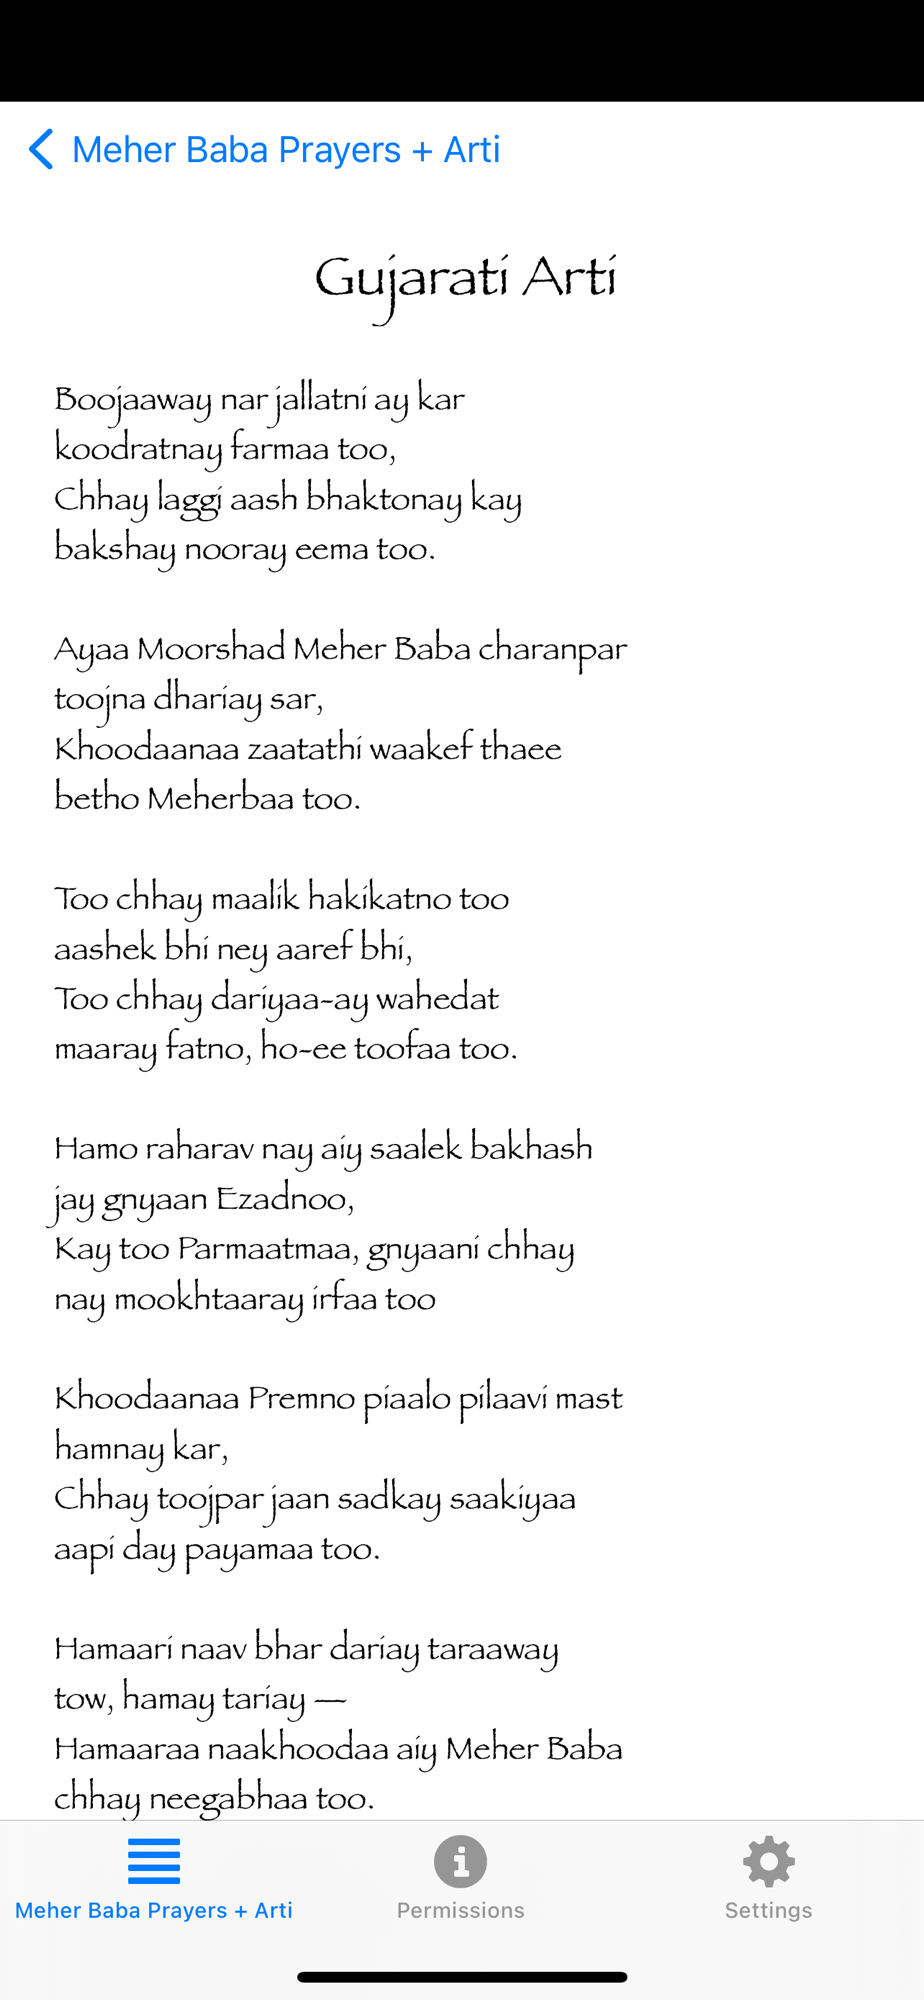 Meher Baba Prayers + Arti
Gujarati Arti
Boojaaway nar jallatni ay kar
koodratnay farmaa too,
Chhay laggi aash bhaktonay kay
bakshay nooray eema too.
Ayaa Moorshad Meher Baba charanpar
toojna dhariay sar,
Khoodaanaa zaatathi waakef thaee
betho Meherbaa too.
Too chhay maalik hakikatno too
aashek bhi ney aaref bhi,
Too chhay dariyaa-ay wahedat
maaray fatno, ho-ee toofaa too.
Hamo raharav nay aiy saalek bakhash
jay gnyaan Ezadnoo,
Kay too Parmaatmaa, gnyaani chhay
nay mookhtaaray irfaa too
Khoodaanaa Premno piaalo pilaavi mast
hamnay kar,
Chhay toojpar jaan sadkay saakiyaa
aapi day payamaa too.
Hamaari naav bhar dariay taraaway
tow, hamay tariay —
Hamaaraa naakhoodaa aiy Meher Baba
chhay neegabhaa too.
Meher Baba Prayers + Arti
Permissions
Settings